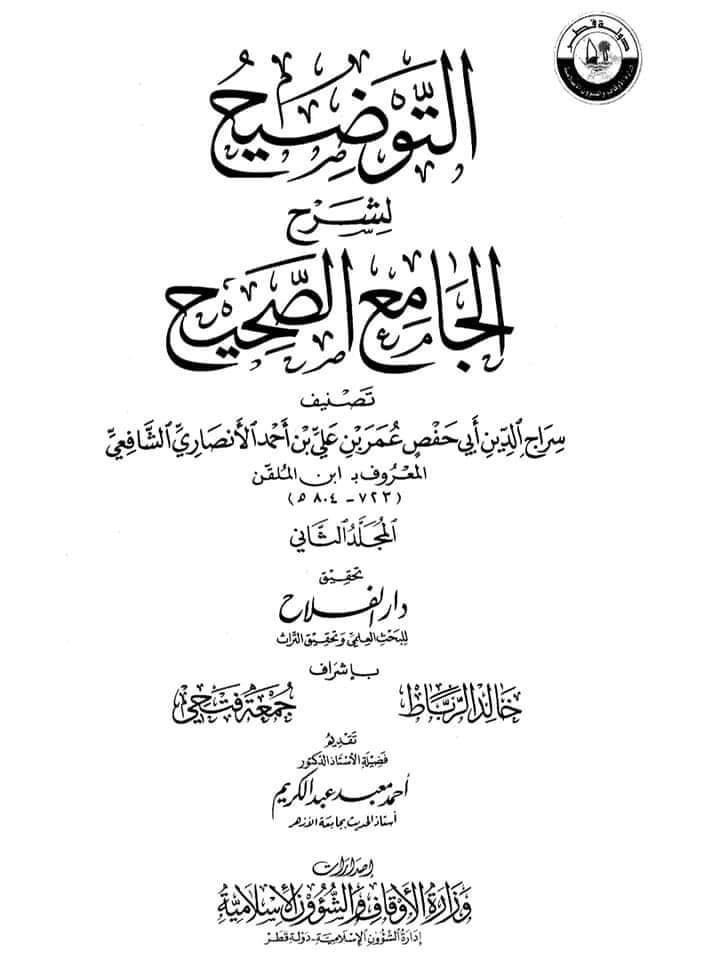 دولة قطر
وزارة الأوقاف والشؤون الإسلامية
التَّوْضِيحُ
لِشَرْحِ
الجَامِعِ الصَّحِيحِ
تَصْنِيف
سِرَاجِ الدِّينِ أَبِي حَفْصٍ عُمَرَ بْنِ عَلِيِّ بْنِ أَحْمَدَ الأَنْصَارِيِّ الشَّافِعِيِّ
المَعْرُوف بـ ابن المُلَقِّن
(٧٢٣ - ٨٠٤ ه)
المُجَلَّدُ الثَّانِي
تحقِيق
دار الفلاح
لِلبَحْثِ العِلمِيّ وَتَحْقِيقِ التُّرَاث
بِإِشرَاف
خَالِد الرَّبَّاط جُمعَة فَتْحِي
تَقْدِيم
فَضِيلَة الأُسْتَاذ الدّكتُور
أحمد معبد عبد الكريم
أستاذ الحديث بجامعة الأزهر
إصدَارَات
وَزَارَةُ الأَوْقَافِ وَالشُّؤُونِ الإِسْلَامِيَّةِ
إدَارَةُ الشُّؤُونِ الإِسْلَامِيَّةِ - دَوْلَة قَطَر